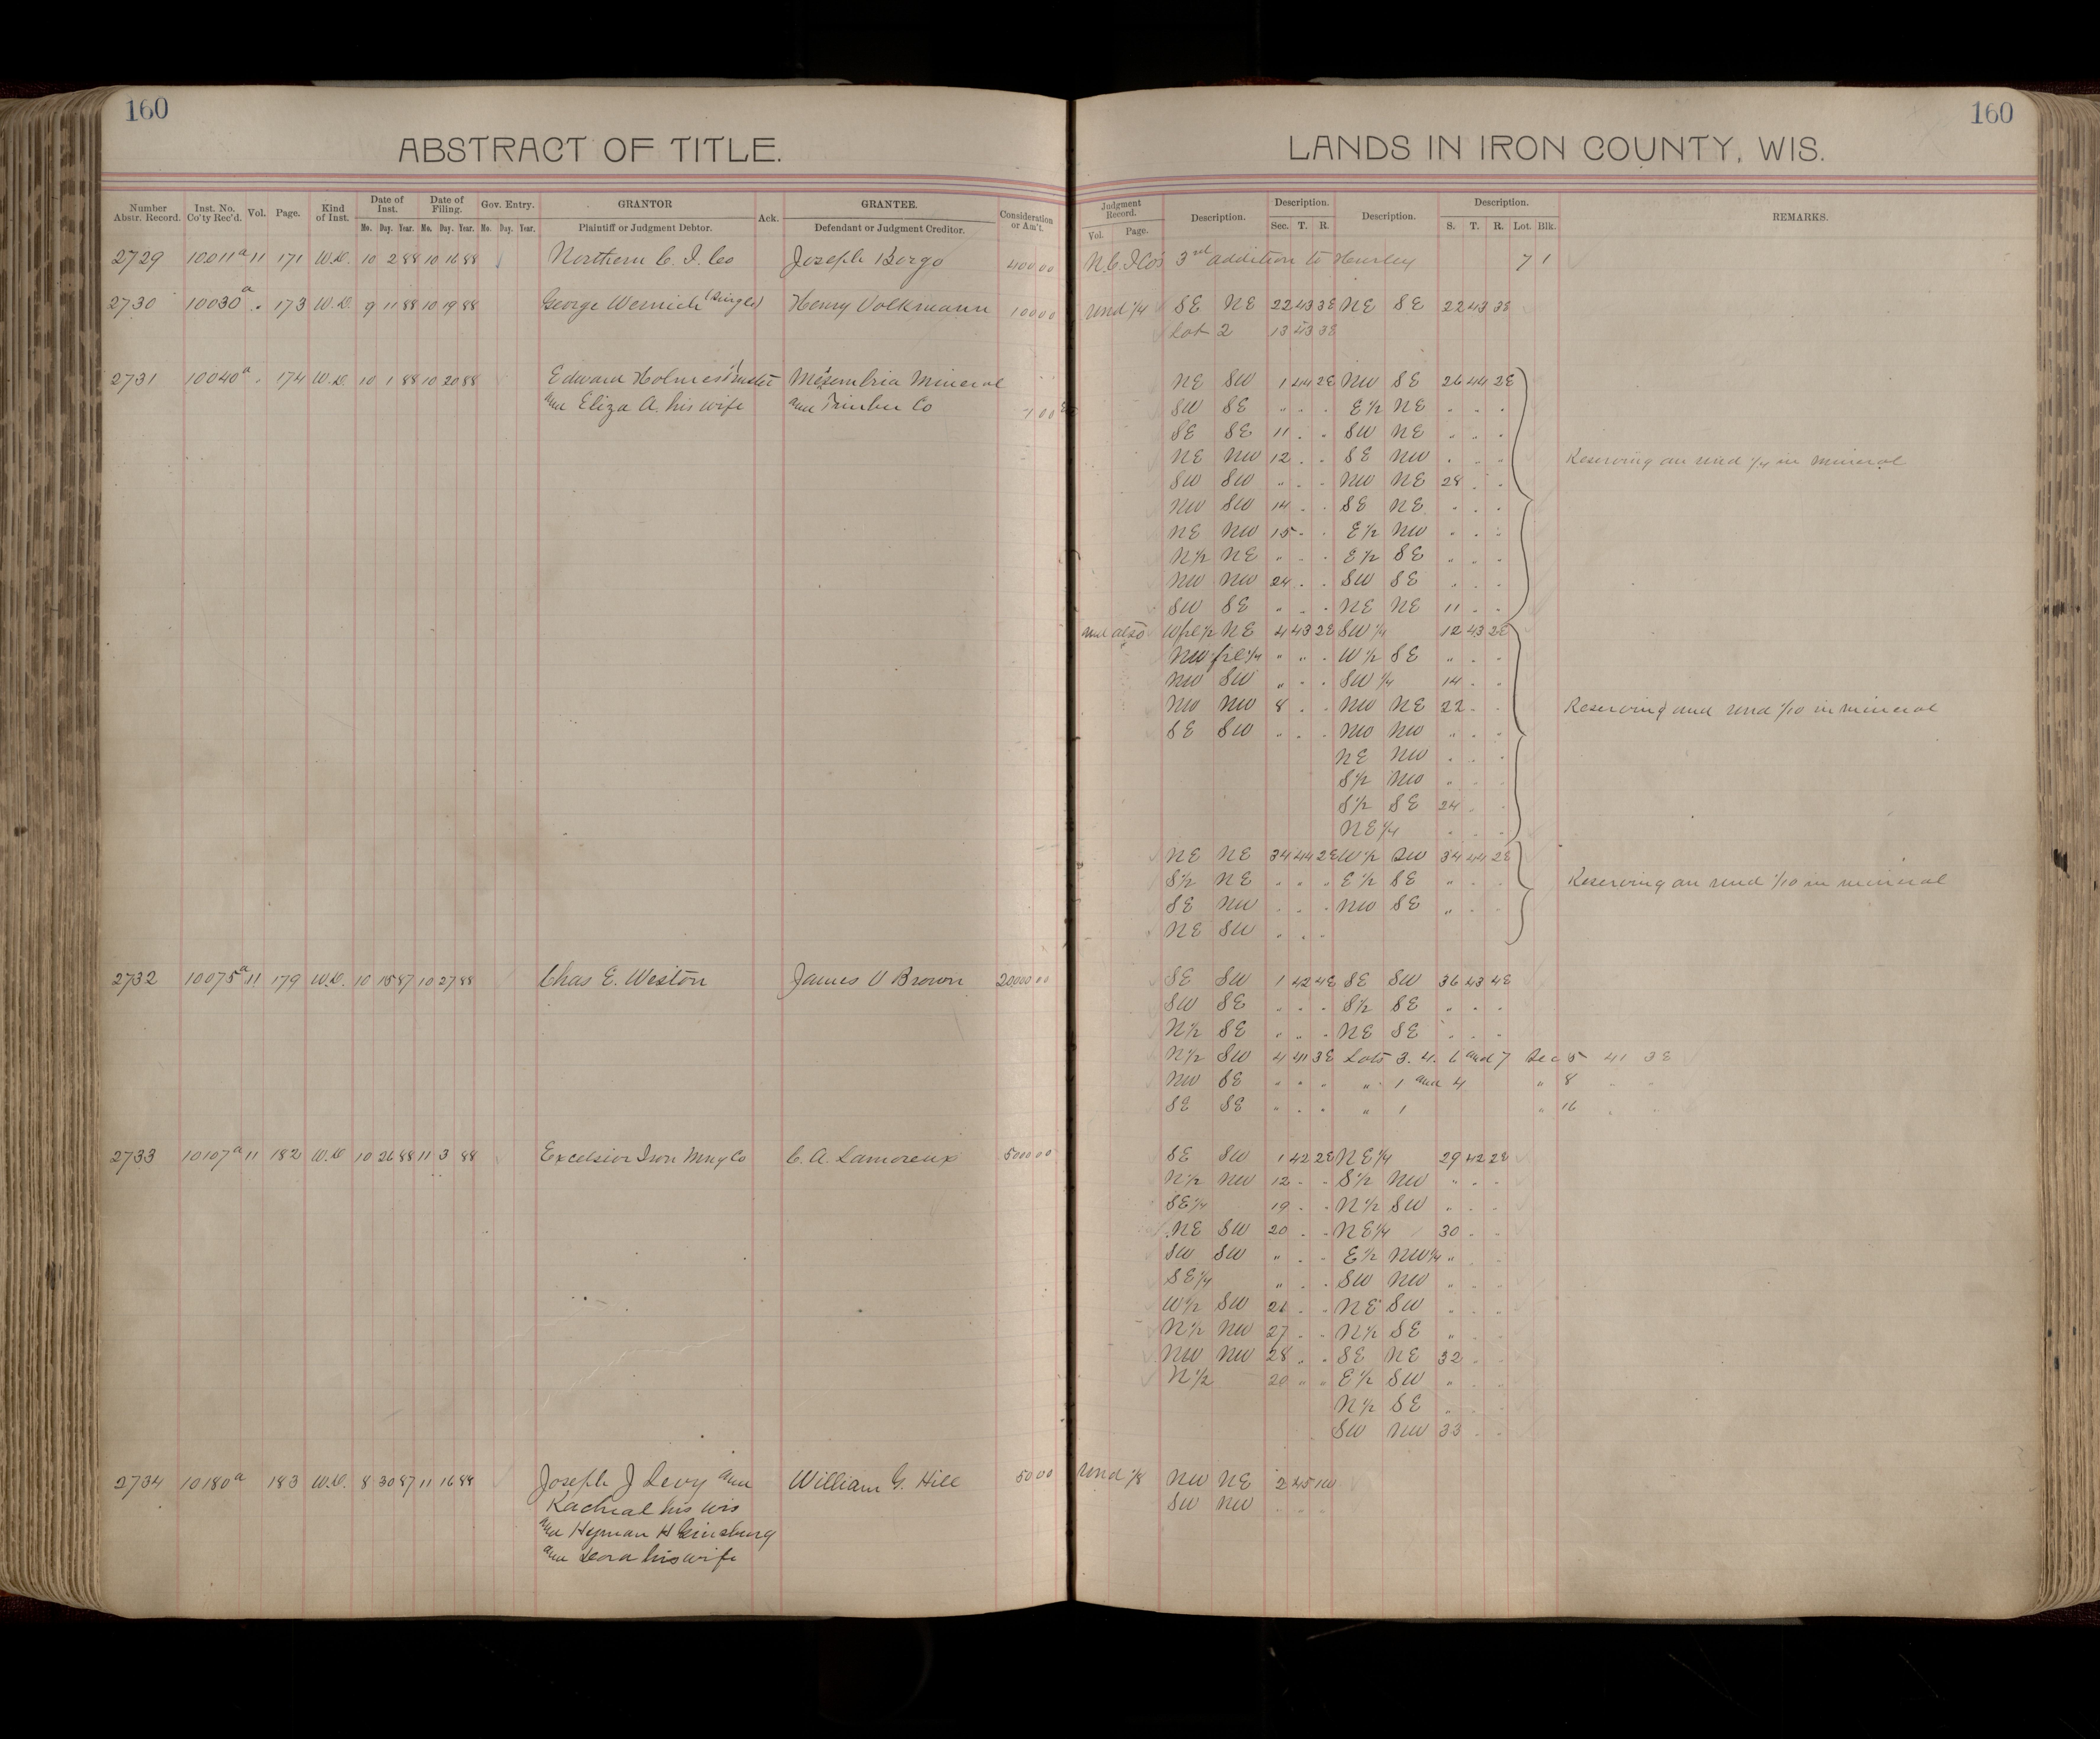 160
160
ABSTRACT OF TITLE.
LANDS IN IRON COUNTY, WIS.
Number Abstr. Record. Inst. No. Co'ty Rec'd. Vol. Page. Kind of Inst. Date of Inst. Mo. Day. Year. Date of Filing. Mo. Day. Year. Gov. Entry. Mo. Day. Year. GRANTOR Plaintiff or Judgment Debtor. Ack. GRANTEE. Defendant or Judgment Creditor. Consideration or Am't.
Judgment Record. Vol. Page. Description. Description. Sec. T. R. Description. Description. S. T. R. Lot. Blk. REMARKS.
2729 10011a 11 171 W.D. 10 2 88 10 16 88 Northern C. I. Co Joseph Borgo 400 00 N.C.I.Co's 3rd addition to Hurley 7 1
2730 10030a " 173 W.D. 9 11 88 10 19 88 George Wernich (Single) Henry Volkmann 100 00 und 1/4 SE NE 22 43 3E NE SE 22 43 3E
Lot 2 13 43 3E
2731 10040a " 174 W.D. 10 1 88 10 20 88 Edward Holmes Trustee Mesembria Mineral NE SW 1 44 2E NW SE 26 44 2E
and Eliza A. his wife and Timber Co 1 00 SW SE " " " E 1/2 NE " " "
SE SE 11 " " SW NE " " "
NE NW 12 " " SE NW " " " Reserving an und 1/4 in mineral
SW SW " " " NW NE 28 " "
NW SW 14 " " SE NE " " "
NE NW 15 " " E 1/2 NW " " "
N 1/2 NE " " " E 1/2 SE " " "
NW NW 24 " " SW SE " " "
SW SE " " " NE NE 11 " "
and also W frl 1/2 NE 4 43 2E SW 1/4 12 43 2E
NW frl 1/4 " " " W 1/2 SE " " "
NW SW " " " SW 1/4 14 " "
NW NW 8 " " NW NE 22 " " Reserving and und 1/10 in mineral
SE SW " " " NW NW " " "
NE NW " " "
S 1/2 NW " " "
S 1/2 SE 24 " "
NE 1/4 " " "
NE NE 34 44 2E W 1/2 SW 34 44 2E
S 1/2 NE " " " E 1/2 SE " " " Reserving an und 1/10 in mineral
SE NW " " " NW SE " " "
NE SW " " "
2732 10075a 11 179 W.D. 10 15 87 10 27 88 Chas E. Weston James V Brown 20000 00 SE SW 1 42 4E SE SW 36 43 4E
SW SE " " " S 1/2 SE " " "
N 1/2 SE " " " NE SE " " "
N 1/2 SW 4 41 3E Lots 3. 4. 6 and 7 Sec 5 41 3E
NW SE " " " " 1 and 4 " 8 " "
SE SE " " " " 1 " 16 " "
2733 10107a 11 182 W.D. 10 26 88 11 3 88 Excelsior Iron Mng Co C. A. Lamoreux 500 00 SE SW 1 42 2E NE 1/4 29 42 2E
N 1/2 NW 12 " " S 1/2 NW " " "
SE 1/4 19 " " N 1/2 SW " " "
NE SW 20 " " NE 1/4 30 " "
SW SW " " " E 1/2 NW 1/4 " " "
SE 1/4 " " " SW NW " " "
W 1/2 SW 21 " " NE SW " " "
N 1/2 NW 27 " " N 1/2 SE " " "
NW NW 28 " " SE NE 32 " "
N 1/2 20 " " E 1/2 SW " " "
N 1/2 SE " " "
SW NW 33 " "
2734 10180a 183 W.D. 8 30 87 11 16 88 Joseph J Levy and William G. Hill 50 00 und 1/8 NW NE 2 45 1W
Rachal his wife SW NW " " "
and Hyman H Ginsburg
and Dora his wife